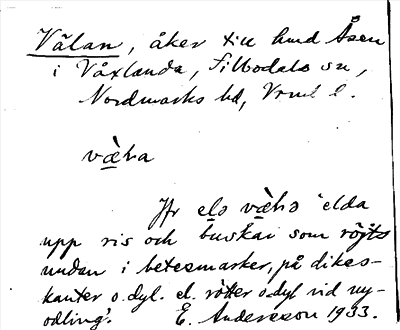 Välan, åker till hmd Åsen
i Växlanda, Sillbodals sn,
Nordmarks hd, Vrml l.
Jfr elə 'elda
upp ris och buskar som röjts
undan i betesmarker, på dikes-
kanter o.dyl. el. rötter o.dyl vid ny-
odling'. E. Andersson 1933.